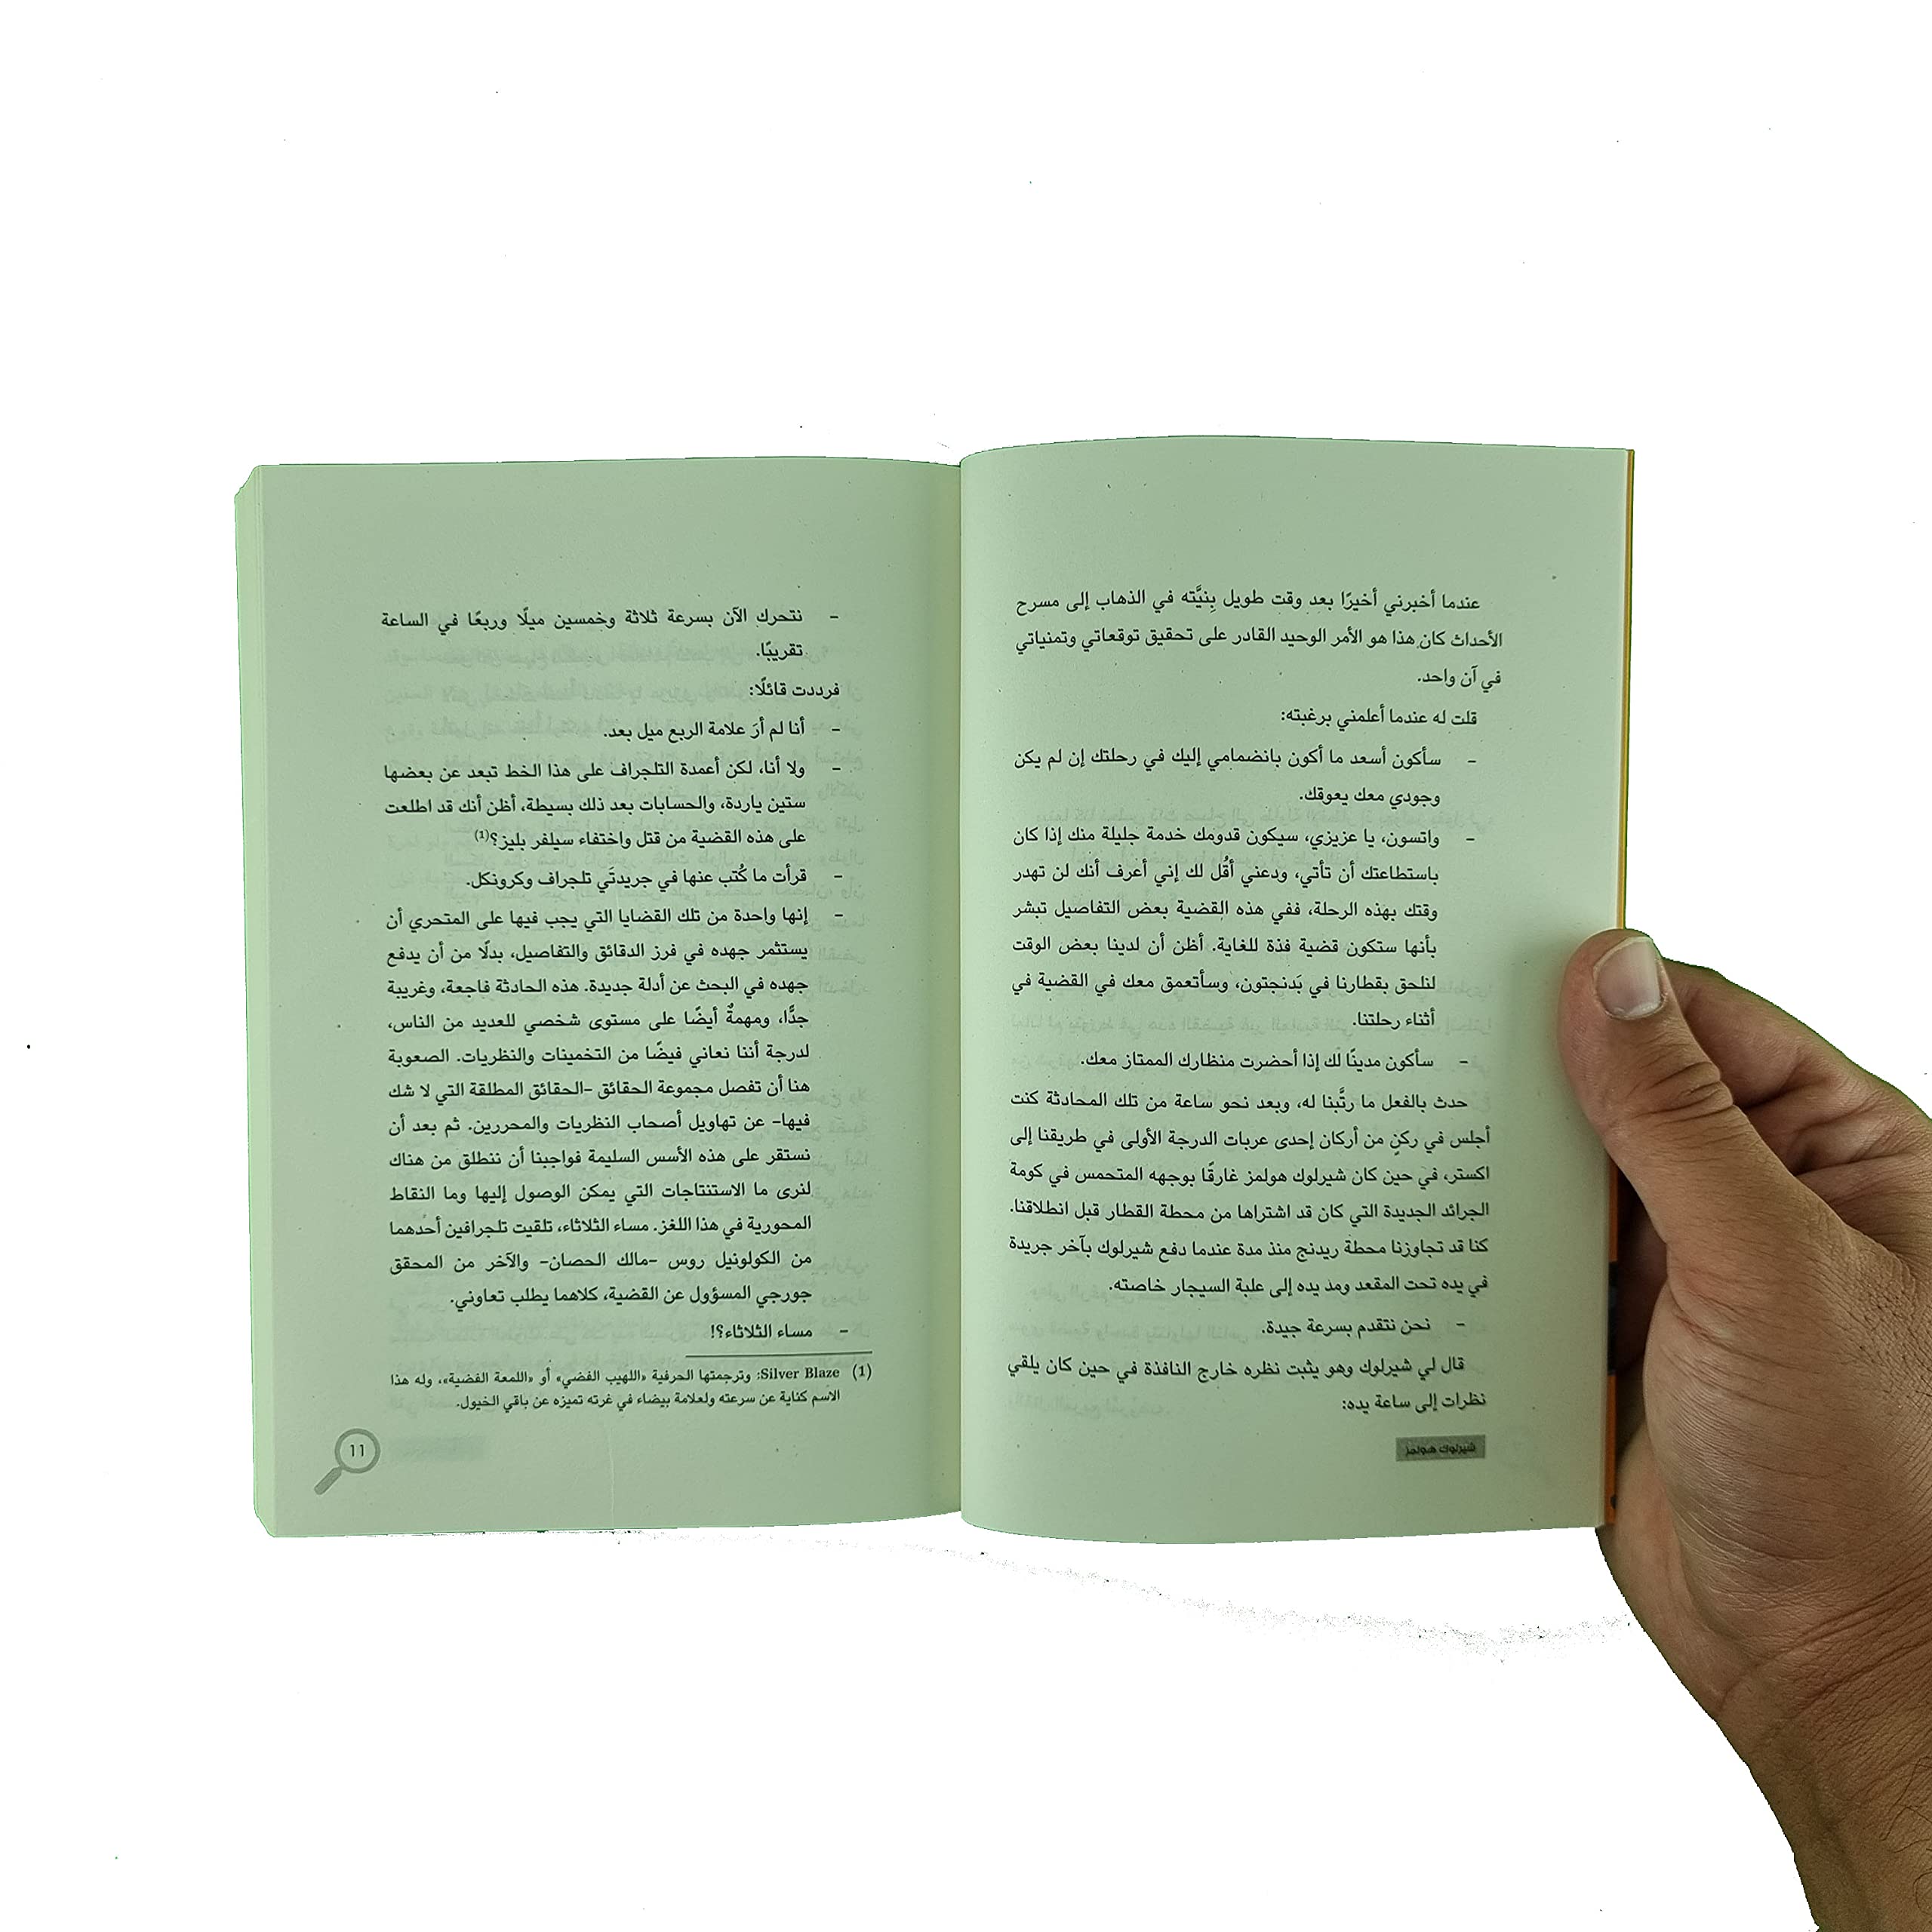 عندما أخبرني أخيرًا بعد وقت طويل بِنيَّته في الذهاب إلى مسرح
الأحداث كان هذا هو الأمر الوحيد القادر على تحقيق توقعاتي وتمنياتي
في آن واحد.
قلت له عندما أعلمني برغبته:
– سأكون أسعد ما أكون بانضمامي إليك في رحلتك إن لم يكن
وجودي معك يعوقك.
– واتسون، يا عزيزي، سيكون قدومك خدمة جليلة منك إذا كان
باستطاعتك أن تأتي، ودعني أقُل لك إني أعرف أنك لن تهدر
وقتك بهذه الرحلة، ففي هذه القضية بعض التفاصيل تبشر
بأنها ستكون قضية فذة للغاية. أظن أن لدينا بعض الوقت
لنلحق بقطارنا في بَدنجتون، وسأتعمق معك في القضية في
أثناء رحلتنا.
– سأكون مدينًا لك إذا أحضرت منظارك الممتاز معك.
حدث بالفعل ما رتَّبنا له، وبعد نحو ساعة من تلك المحادثة كنت
أجلس في ركنٍ من أركان إحدى عربات الدرجة الأولى في طريقنا إلى
اكستر، في حين كان شيرلوك هولمز غارقًا بوجهه المتحمس في كومة
الجرائد الجديدة التي كان قد اشتراها من محطة القطار قبل انطلاقنا.
كنا قد تجاوزنا محطة ريدنج منذ مدة عندما دفع شيرلوك بآخر جريدة
في يده تحت المقعد ومد يده إلى علبة السيجار خاصته.
– نحن نتقدم بسرعة جيدة.
قال لي شيرلوك وهو يثبت نظره خارج النافذة في حين كان يلقي
نظرات إلى ساعة يده:
شيرلوك هولمز
– نتحرك الآن بسرعة ثلاثة وخمسين ميلًا وربعًا في الساعة
تقريبًا.
فرددت قائلًا:
– أنا لم أرَ علامة الربع ميل بعد.
– ولا أنا، لكن أعمدة التلجراف على هذا الخط تبعد عن بعضها
ستين ياردة، والحسابات بعد ذلك بسيطة، أظن أنك قد اطلعت
على هذه القضية من قتل واختفاء سيلفر بليز؟(1)
– قرأت ما كُتب عنها في جريدتَي تلجراف وكرونكل.
– إنها واحدة من تلك القضايا التي يجب فيها على المتحري أن
يستثمر جهده في فرز الدقائق والتفاصيل، بدلًا من أن يدفع
جهده في البحث عن أدلة جديدة. هذه الحادثة فاجعة، وغريبة
جدًّا، ومهمةٌ أيضًا على مستوى شخصي للعديد من الناس،
لدرجة أننا نعاني فيضًا من التخمينات والنظريات. الصعوبة
هنا أن تفصل مجموعة الحقائق –الحقائق المطلقة التي لا شك
فيها– عن تهاويل أصحاب النظريات والمحررين. ثم بعد أن
نستقر على هذه الأسس السليمة فواجبنا أن ننطلق من هناك
لنرى ما الاستنتاجات التي يمكن الوصول إليها وما النقاط
المحورية في هذا اللغز. مساء الثلاثاء، تلقيت تلجرافين أحدهما
من الكولونيل روس –مالك الحصان– والآخر من المحقق
جورجي المسؤول عن القضية، كلاهما يطلب تعاوني.
– مساء الثلاثاء؟!
(1) Silver Blaze: وترجمتها الحرفية «اللهيب الفضي» أو «اللمعة الفضية»، وله هذا
الاسم كناية عن سرعته ولعلامة بيضاء في غرته تميزه عن باقي الخيول.
11